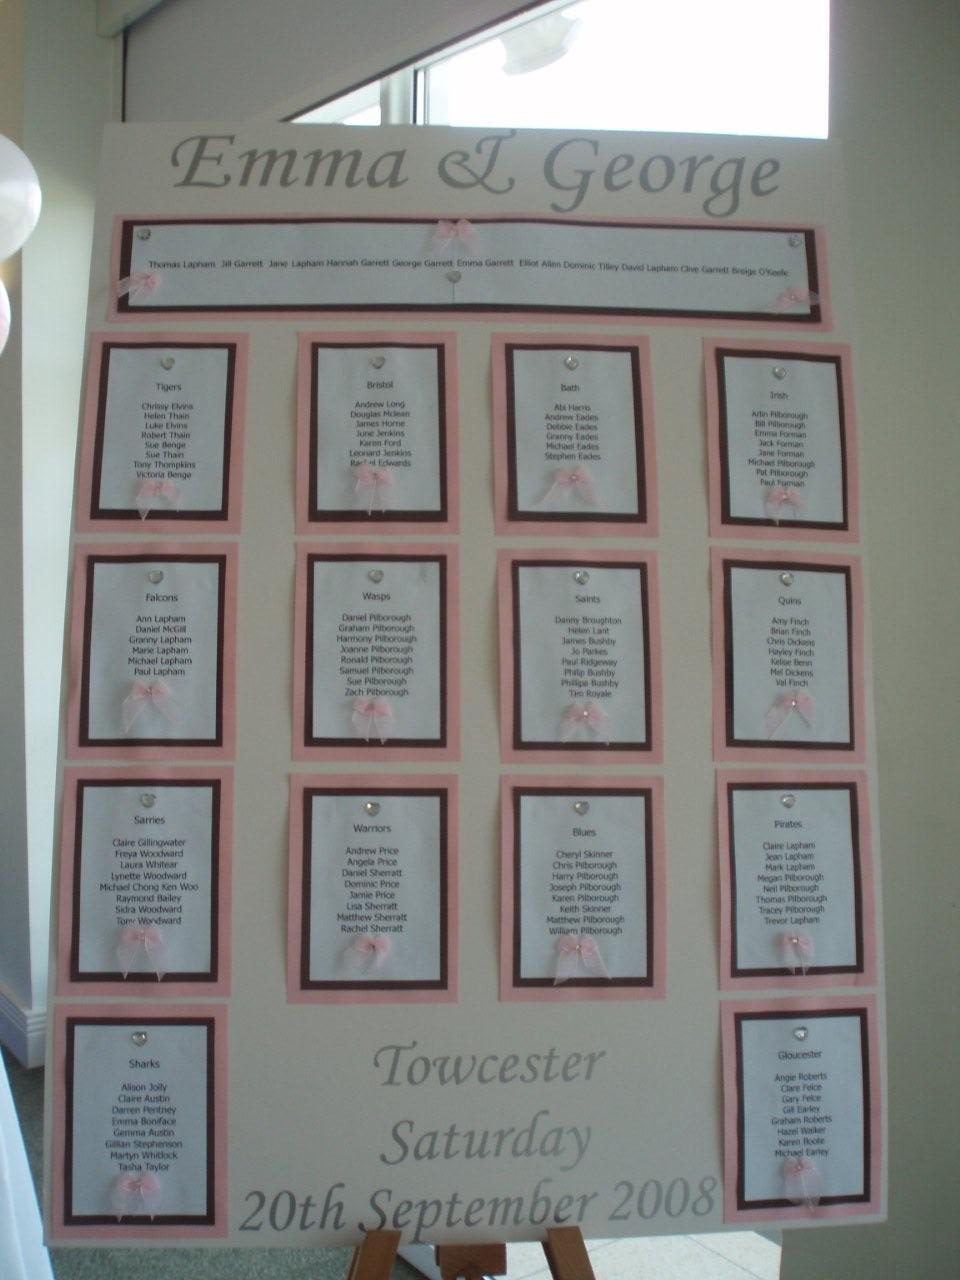 Emma & George
Thomas Lapham Jill Garrett Jane Lapham Hannah Garrett George Garrett Emma Garrett Elliot Allen Dominic Tilley David Lapham Clive Garrett Breige O'Keefe
Tigers
Chrissy Elvins
Helen Thain
Luke Elvins
Robert Thain
Sue Benge
Sue Thain
Tony Thompkins
Victoria Benge
Bristol
Andrew Long
Douglas Mclean
James Horne
June Jenkins
Karen Ford
Leonard Jenkins
Rachel Edwards
Bath
Abi Harris
Andrew Eades
Debbie Eades
Granny Eades
Michael Eades
Stephen Eades
Irish
Arlin Pilborough
Bill Pilborough
Emma Forman
Jack Forman
Jane Forman
Michael Pilborough
Pat Pilborough
Paul Forman
Falcons
Ann Lapham
Daniel McGill
Granny Lapham
Marie Lapham
Michael Lapham
Paul Lapham
Wasps
Daniel Pilborough
Graham Pilborough
Harmony Pilborough
Joanne Pilborough
Ronald Pilborough
Samuel Pilborough
Sue Pilborough
Zach Pilborough
Saints
Danny Broughton
Helen Lant
James Bushby
Jo Parkes
Paul Ridgeway
Philip Bushby
Phillipa Bushby
Tim Royale
Quins
Amy Finch
Brian Finch
Chris Dickens
Hayley Finch
Kelise Benn
Mel Dickens
Val Finch
Sarries
Claire Gillingwater
Freya Woodward
Laura Whitear
Lynette Woodward
Michael Chong Ken Woo
Raymond Bailey
Sidra Woodward
Tony Woodward
Warriors
Andrew Price
Angela Price
Daniel Sherratt
Dominic Price
Jamie Price
Lisa Sherratt
Matthew Sherratt
Rachel Sherratt
Blues
Cheryl Skinner
Chris Pilborough
Harry Pilborough
Joseph Pilborough
Karen Pilborough
Keith Skinner
Matthew Pilborough
William Pilborough
Pirates
Claire Lapham
Jean Lapham
Mark Lapham
Megan Pilborough
Neil Pilborough
Thomas Pilborough
Tracey Pilborough
Trevor Lapham
Sharks
Alison Jolly
Claire Austin
Darren Pentney
Emma Boniface
Gemma Austin
Gillian Stephenson
Martyn Whitlock
Tasha Taylor
Gloucester
Angie Roberts
Clare Felce
Gary Felce
Gill Earley
Graham Roberts
Hazel Walker
Karen Boote
Michael Earley
Towcester
Saturday
20th September 2008